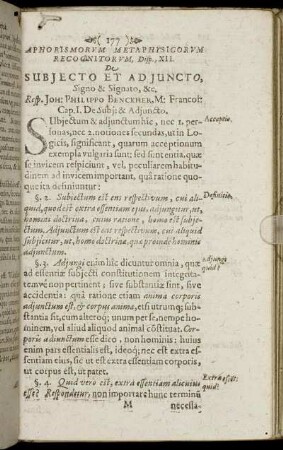 177
APHORISMORVM METAPHYSICORVM
RECOGNITORVM, Disp. XII.
De
SUBJECTO ET ADJUNCTO,
Signo & Signato, &c.
Resp. JOH: PHILIPPO BENCKHER, M: Francof:
Cap. I. De Subj: & Adjuncto.
SUbjectum & adjunctum hic, nec 1. per-
sonas, nec 2. notiones secundas, ut in Lo-
gicis, significant, quarum acceptionum
exempla vulgaria sunt: sed sunt entia, quæ
se invicem respiciunt, vel, peculiarem habitu-
dinem ad invicem important, quâ ratione quo-
que ita definiuntur:
Acceptio.
§. 2. Subjectum est ens respectivum, cui ali-
quid, quod est extra essentiam ejus, adjungitur, ut,
homini doctrina, cujus ratione, homo est subje-
ctum. Adjunctum est ens respectivum, cui aliquid
subjicitur, ut, homo doctrinæ, quæ proinde hominis
adjunctum.
Definitio.
§. 3. Adjungi enim hîc dicuntur omnia, quæ
ad essentiæ subjecti constitutionem integita-
temvè non pertinent; sive substantiæ sint, sive
accidentia: quâ ratione etiam anima corporis
adjunctum est, & corpus animæ, etsi utrunq; sub-
stantia sit, cum alteroq; unum per se, nempe ho-
minem, vel aliud aliquod animal cõstituat. Cor-
poris adjunctum esse dico, non hominis: hujus
enim pars essentialis est, ideoq; nec est extra es-
sentiam ejus, sic ut est extra essentiam corporis,
ut corpus est, ut patet.
adjungi
quid?
§. 4. Quid vero est, extra essentiam alicujus
esse? Respondetur, non importare hunc terminũ
Extra essẽt:
quid?
M
necessa-